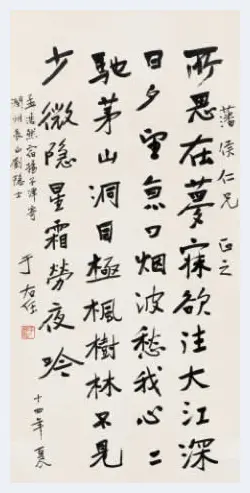 藩侯仁兄 正之
所思在夢寐欲往大江深
日夕望京口烟波愁我心〻
馳茅山洞目極楓樹林不見
少微隐星霜勞夜吟
孟浩然宿揚子津寄
潤州長山劉隱士
十四年
于右任